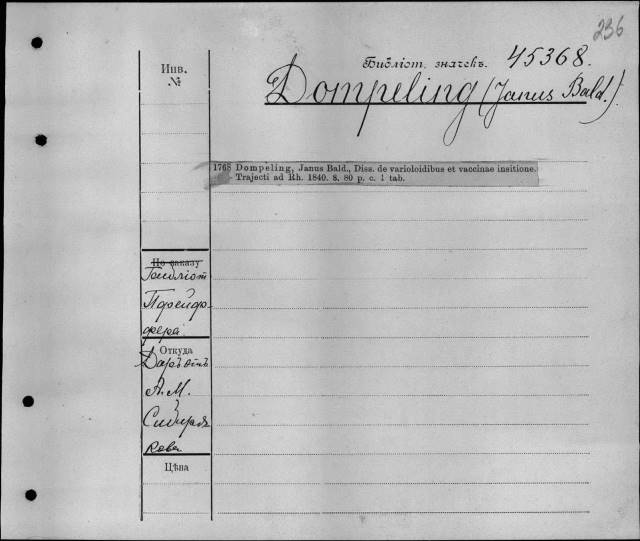 236
Библіот. значекъ. 45368.
Инв. №
Dompeling (Janus Bald.)
1768 Dompeling, Janus Bald., Diss. de varioloidibus et vaccinae insitione.
Trajecti ad Rh. 1840. 8. 80 p. c. 1 tab.
По заказу
Библіот
Пфейф-
фера
Откуда
Даръ отъ
А. М.
Сибиря-
кова
Цѣна